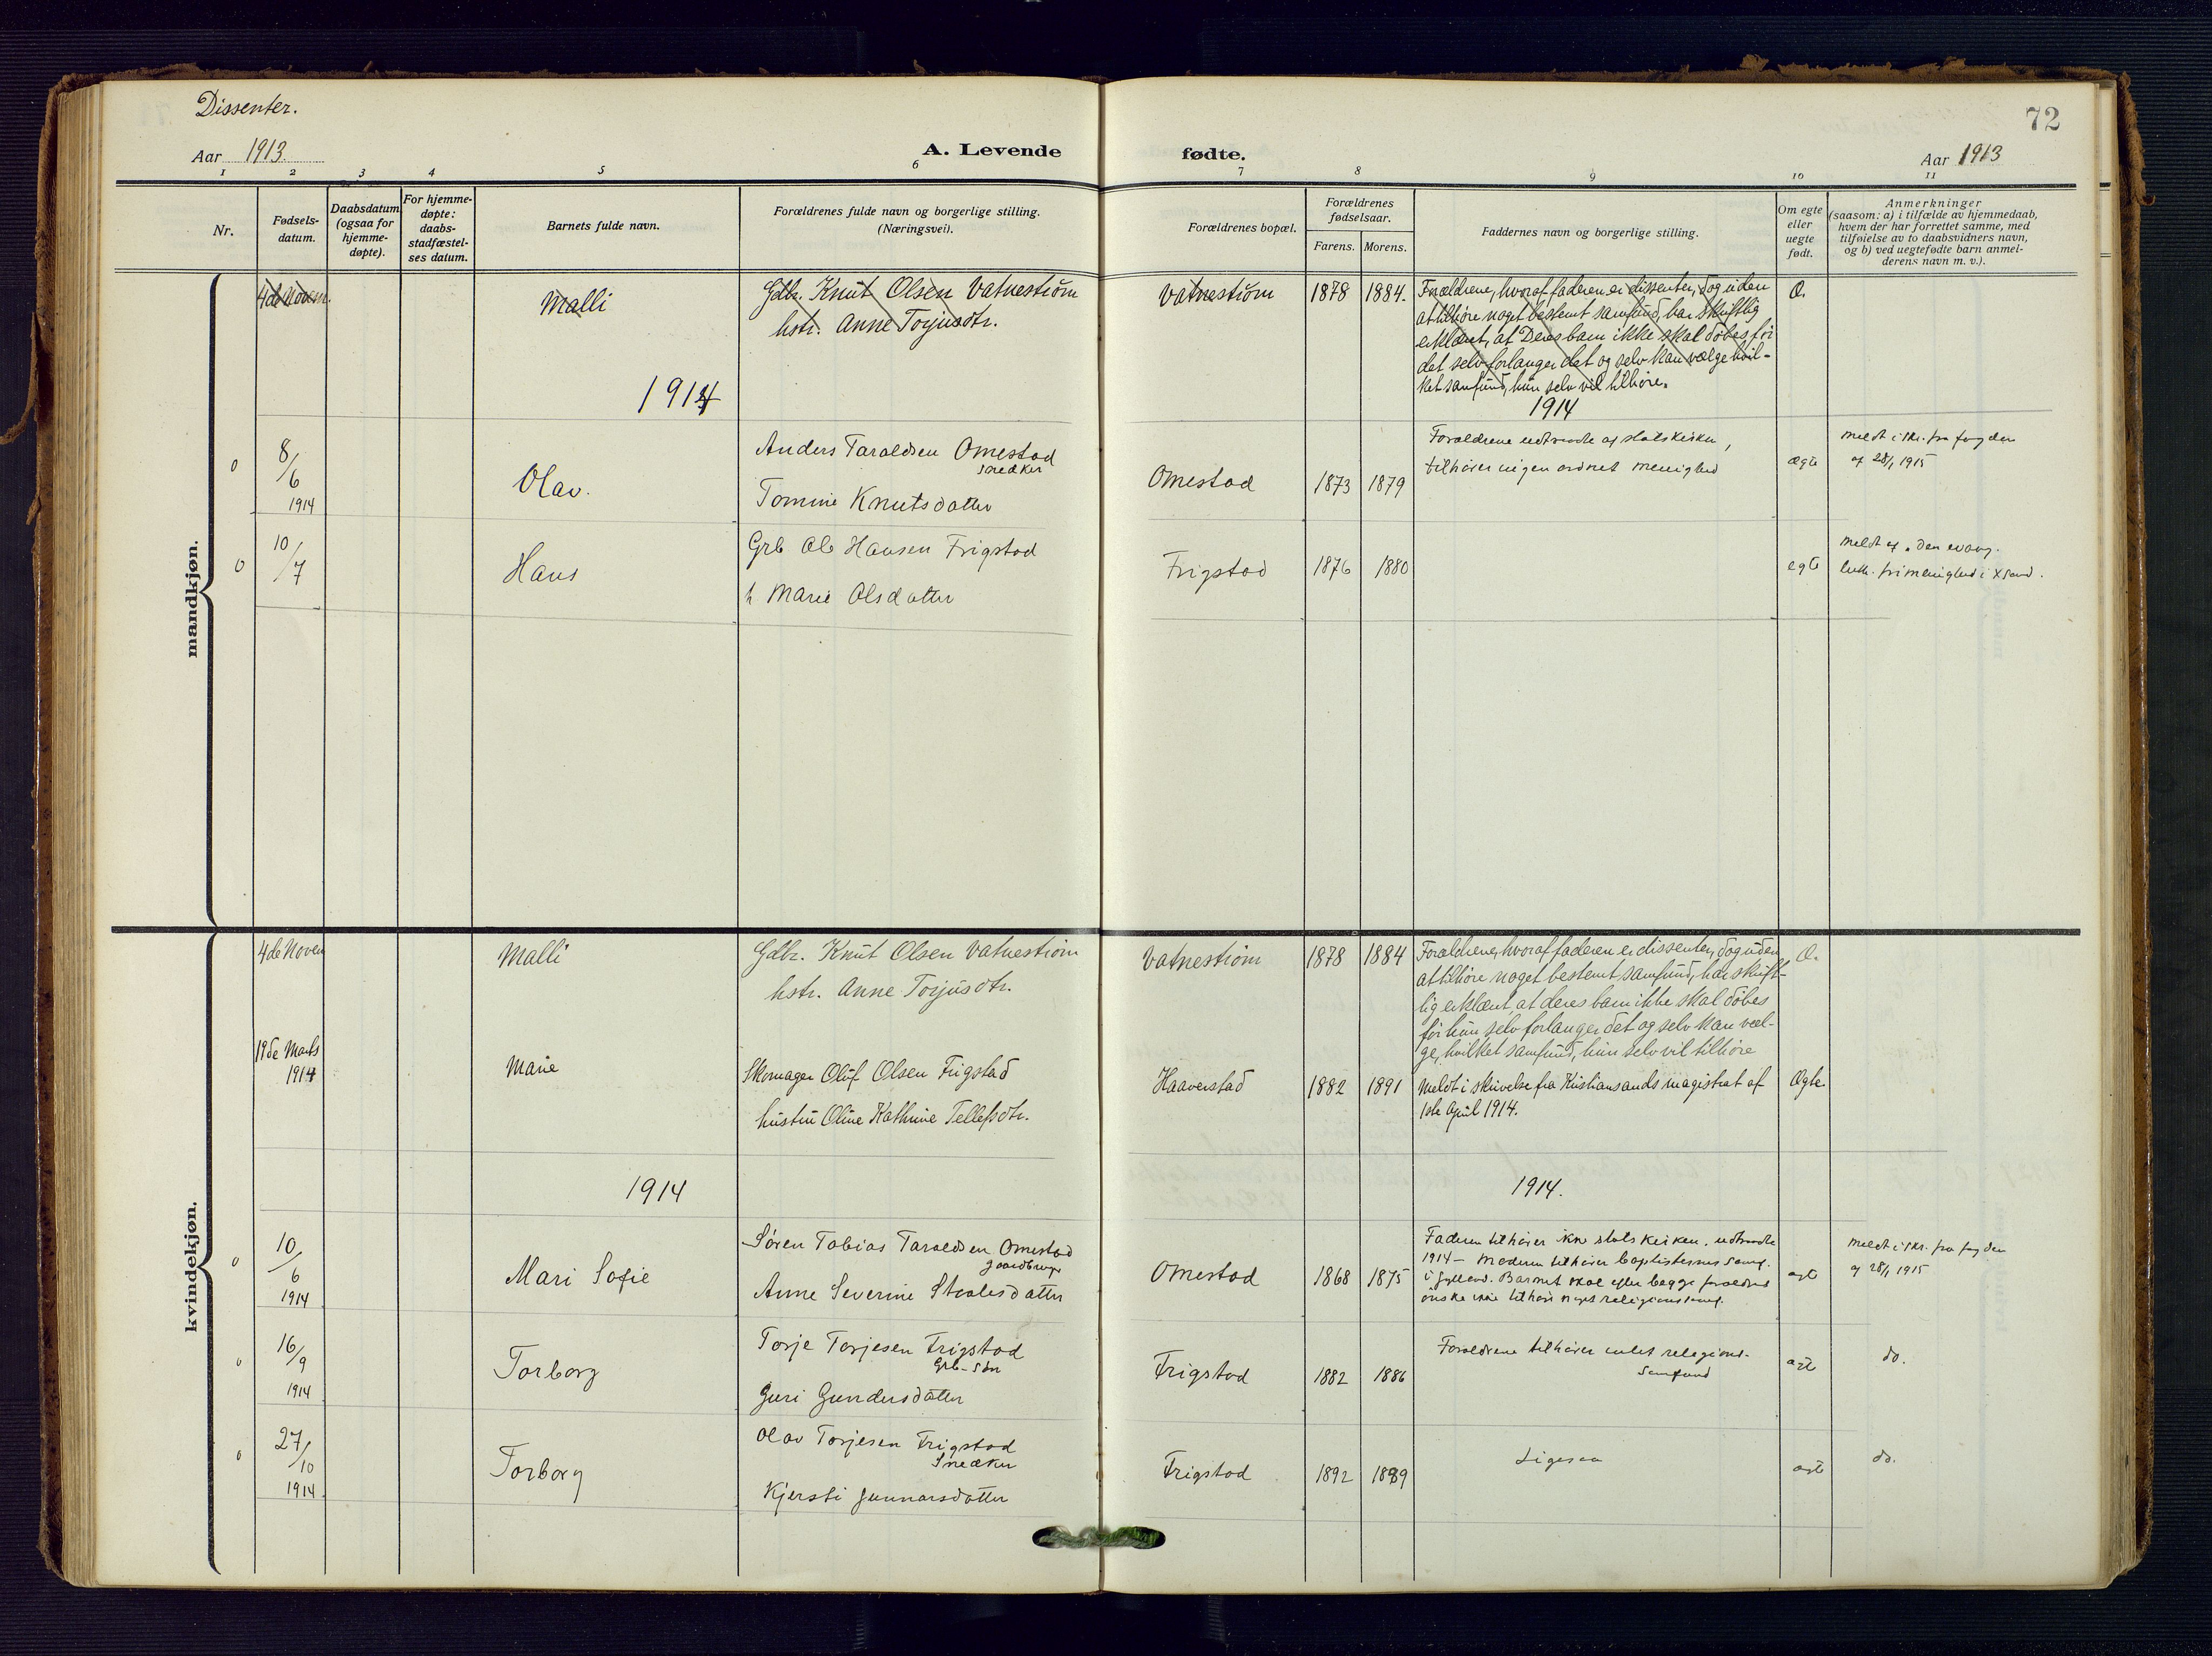 Dissenter.
72
Aar 1913.
A. Levende
fødte.
Aar 1913
1 2 3 4 5 6 7 8 9 10 11
Nr.
Fødsels-
datum.
Daabsdatum
(ogsaa for
hjemme-
døpte).
For hjemme-
døpte:
daabs-
stadfæstel-
ses datum.
Barnets fulde navn.
Forældrenes fulde navn og borgerlige stilling.
(Næringsvei).
Forældrenes bopæl.
Forældrenes
fødselsaar.
Farens. Morens.
Faddernes navn og borgerlige stilling.
Om egte
eller
uegte
født.
Anmerkninger
(saasom: a) i tilfælde av hjemmedaab,
hvem der har forrettet samme, med
tilføielse av to daabsvidners navn,
og b) ved uegtefødte barn anmel-
derens navn m. v.).
mandkjøn.
4de Novem.
Malli
Gdbr. Knut Olsen Vatnestrøm
hstr. Anne Torjusdtr.
Vatnestrøm
1878 1884.
Forældrene, hvoraf faderen er dissenter, dog uden
at tilhøre noget bestemt samfund, har skriftlig
erklæret, at Deres barn ikke skal döbes før
det selv forlanger det og selv kan vælge hvil-
ket samfund, hun selv vil tilhøre.
Æ.
1914
1914
0
8/6
1914
Olav.
Anders Taraldsen Omestad
snedker
Tomine Knutsdatter
Omestad
1873 1879
Forældrene udtraadt af statskirken,
tilhører ingen ordnet menighed
ægte
meldt i skr. fra fogden
af 28/1 1915
0
10/7
Hans
Grb Ole Hansen Frigstad
h Marie Olsdatter
Frigstad
1876 1880
egte
meldt af "den evang.
luth. frimenighed i Xsand.
kvindekjøn.
4de Novem
Malli
Gdbr. Knut Olsen Vatnestrøm
hstr. Anne Torjusdtr.
Vatnestrøm
1878 1884
Forældrene, hvoraf faderen er dissenter, dog uden
at tilhøre noget bestemt samfund, har skrift-
lig erklæret, at deres barn ikke skal döbes
før hun selv forlanger det og selv kan væl-
ge, hvilket samfund, hun selv vil tilhöre
Æ.
19de Marts
1914
Marie
Skomager Oluf Olsen Frigstad
hustru Oline Kathrine Tellefsdtr.
Haaverstad
1882 1891
Meldt i skrivelse fra Kristiansands magistrat af
1ste April 1914.
Ægte
1914
1914.
0
10/6
1914
Mari Sofie
Søren Tobias Taraldsen Omestad
gaardbruger
Anne Severine Staalesdatter
Omestad
1868 1875
Faderen tilhører ikke statskirken, udtraadt
1914 – Moderen tilhører baptisternes samf.
i Gjelland. Barnet skal efter begge forældres
önske ikke tilhøre noget religionssamf.
ægte
meldt i skr. fra fogden
af 28/1 1915
0
16/9
1914
Torborg
Torje Torjesen Frigstad
Grb-søn
Guri Gundersdatter
Frigstad
1882 1886
Forældrene tilhører intet religions-
samfund
ægte
do.
0
27/10
1914
Torborg
Olav Torjesen Frigstad
Snedker
Kjersti Gunnarsdatter
Frigstad
1892 1889
Ligesaa
ægte
do.